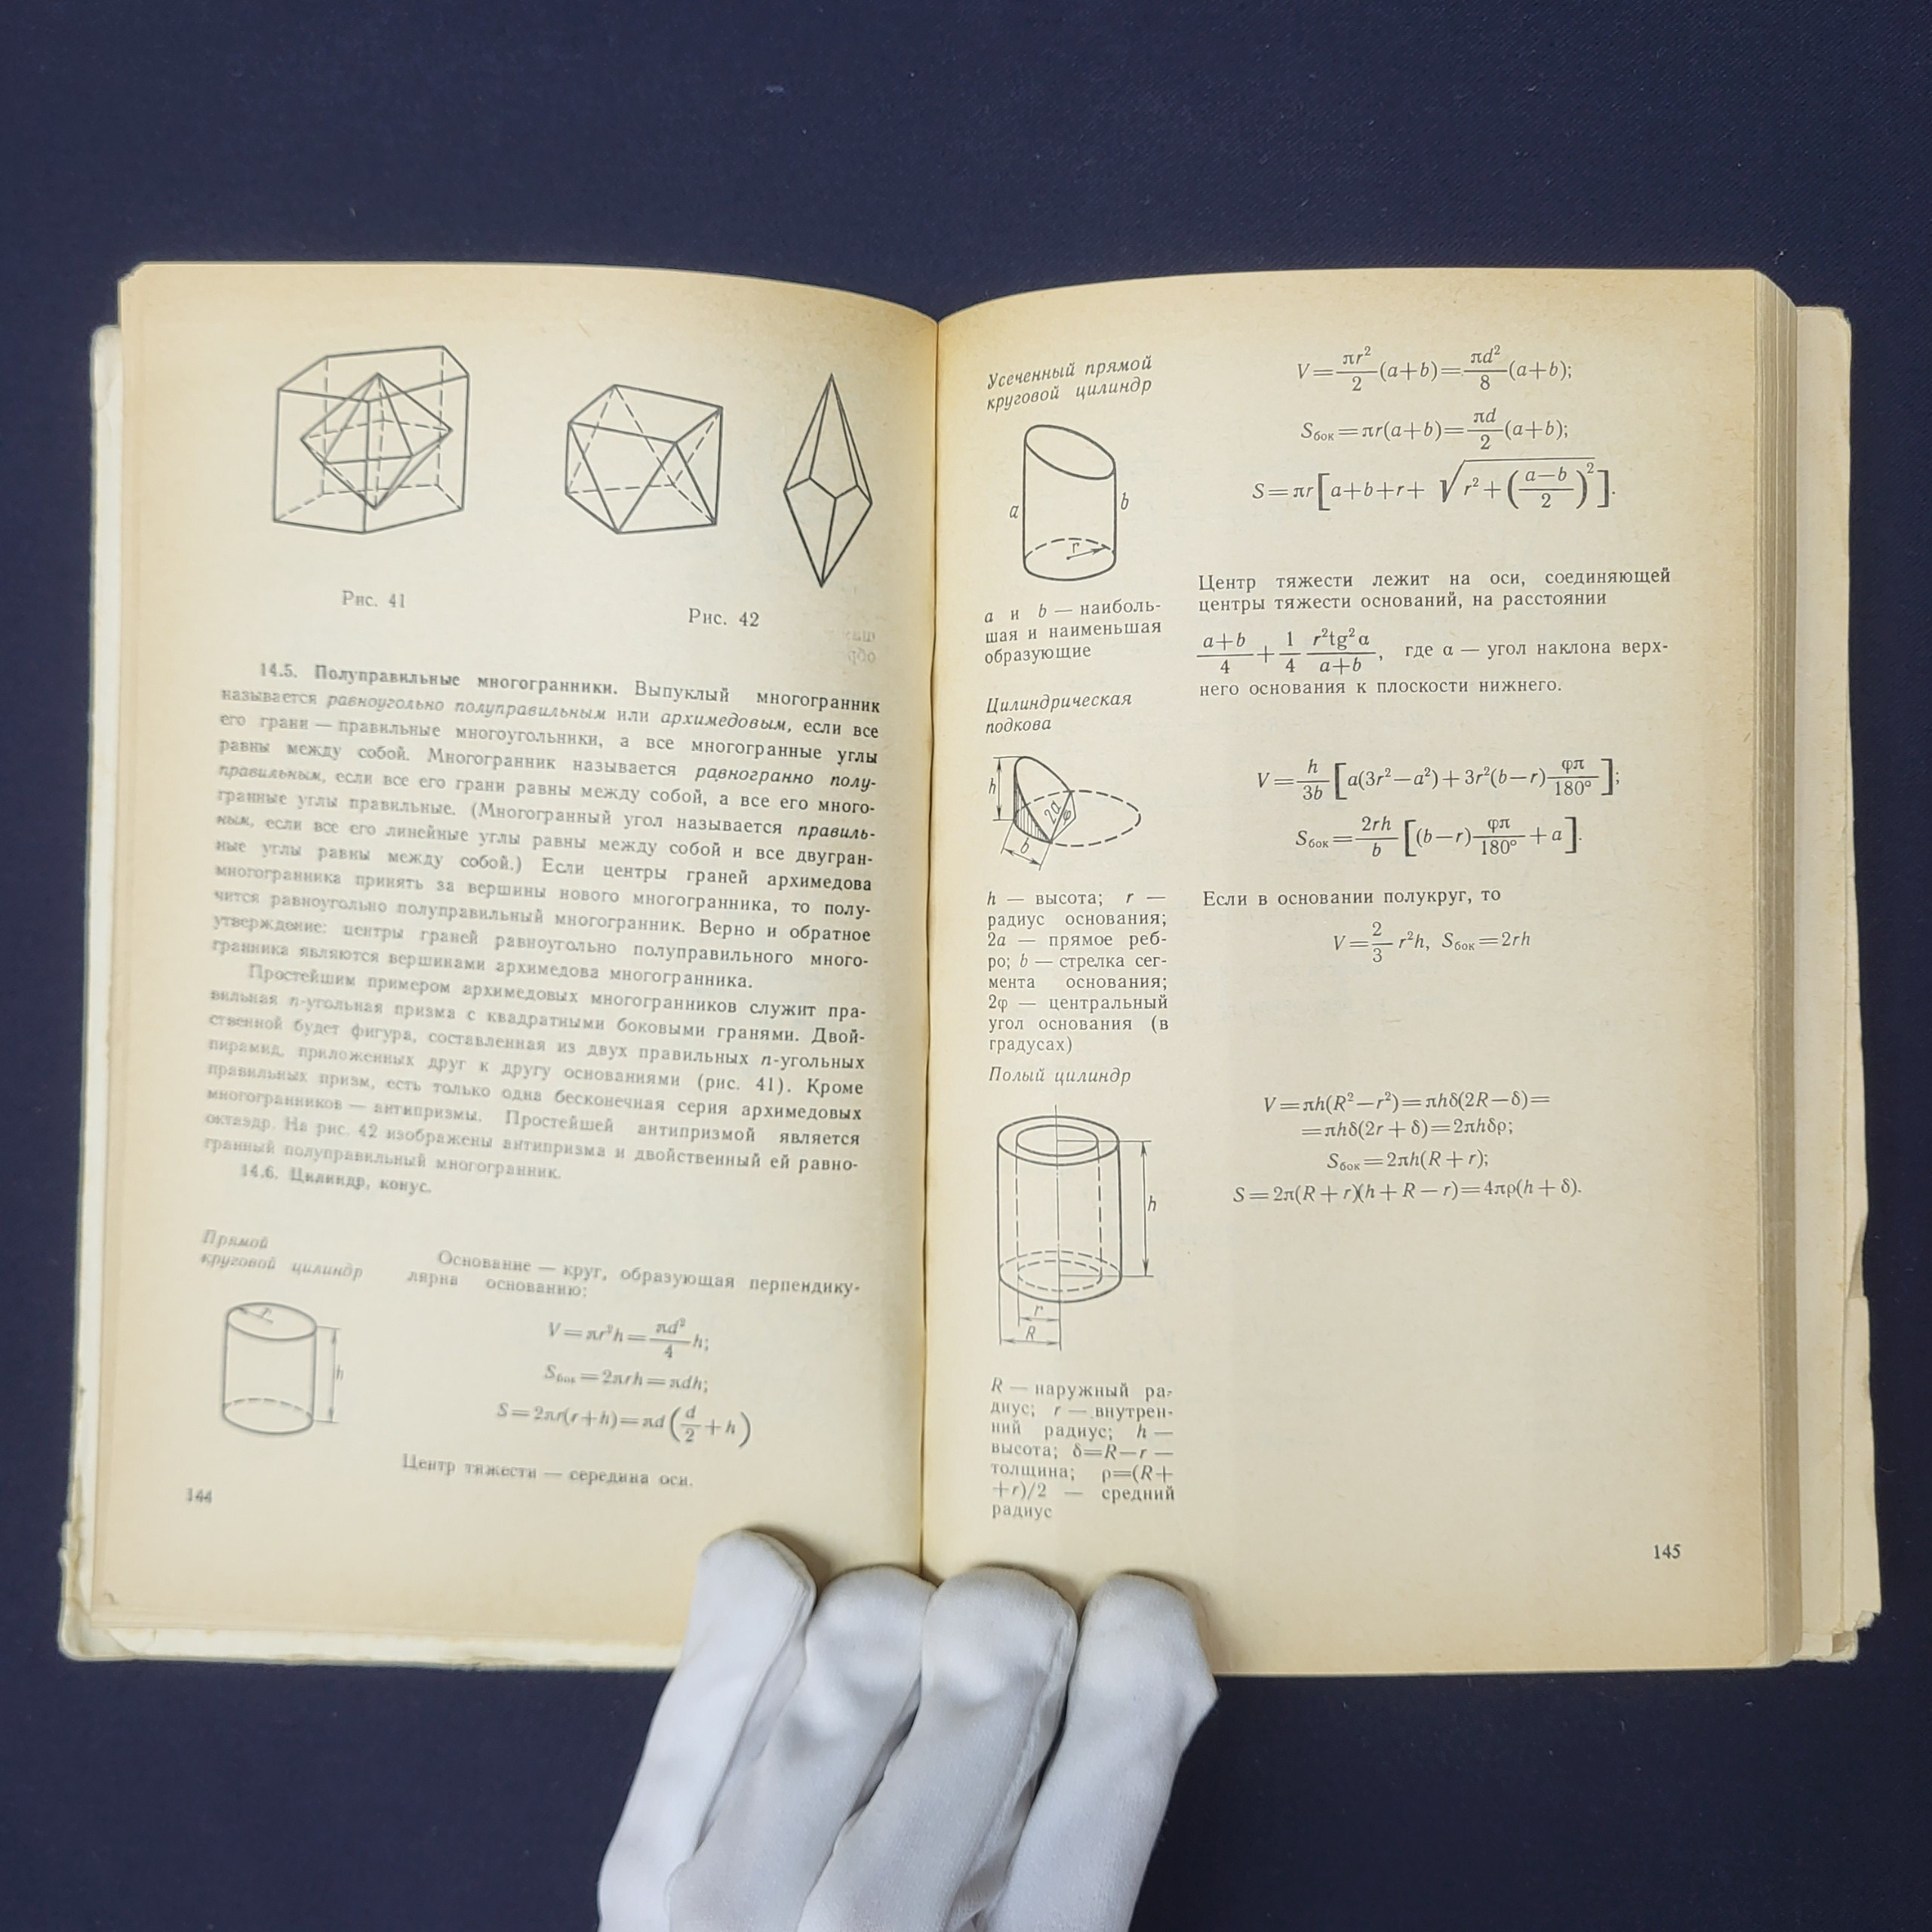 Рис. 41
Рис. 42
14.5. Полуправильные многогранники. Выпуклый многогранник
называется равноугольно полуправильным или архимедовым, если все
его грани — правильные многоугольники, а все многогранные углы
равны между собой. Многогранник называется равногранно полу-
правильным, если все его грани равны между собой, а все его много-
гранные углы правильные. (Многогранный угол называется правиль-
ным, если все его линейные углы равны между собой и все двугран-
ные углы равны между собой.) Если центры граней архимедова
многогранника принять за вершины нового многогранника, то полу-
чится равноугольно полуправильный многогранник. Верно и обратное
утверждение: центры граней равноугольно полуправильного много-
гранника являются вершинами архимедова многогранника.
Простейшим примером архимедовых многогранников служит пра-
вильная n-угольная призма с квадратными боковыми гранями. Двой-
ственной будет фигура, составленная из двух правильных n-угольных
пирамид, приложенных друг к другу основаниями (рис. 41). Кроме
правильных призм, есть только одна бесконечная серия архимедовых
многогранников — антипризмы. Простейшей антипризмой является
октаэдр. На рис. 42 изображены антипризма и двойственный ей равно-
гранный полуправильный многогранник.
14.6. Цилиндр, конус.
Прямой
круговой цилиндр
r
h
Основание — круг, образующая перпендику-
лярна основанию:
V=πr²h=πd²/4 h;
Sбок=2πrh=πdh;
S=2πr(r+h)=πd(d/2+h)
Центр тяжести — середина оси.
144
Усеченный прямой
круговой цилиндр
a
b
r
a и b — наиболь-
шая и наименьшая
образующие
V=πr²/2 (a+b)=πd²/8 (a+b);
Sбок=πr(a+b)=πd/2 (a+b);
S=πr[a+b+r+√(r²+((a−b)/2)²)].
Центр тяжести лежит на оси, соединяющей
центры тяжести оснований, на расстоянии
(a+b)/4+1/4 r²tg²α/(a+b), где α — угол наклона верх-
него основания к плоскости нижнего.
Цилиндрическая
подкова
h
2a
φ
b
h — высота; r —
радиус основания;
2a — прямое реб-
ро; b — стрелка сег-
мента основания;
2φ — центральный
угол основания (в
градусах)
V=h/3b [a(3r²−a²)+3r²(b−r)φπ/180°];
Sбок=2rh/b [(b−r)φπ/180°+a].
Если в основании полукруг, то
V=2/3 r²h, Sбок=2rh
Полый цилиндр
h
r
R
R — наружный ра-
диус; r — внутрен-
ний радиус; h —
высота; δ=R−r —
толщина; ρ=(R+
+r)/2 — средний
радиус
V=πh(R²−r²)=πhδ(2R−δ)=
=πhδ(2r+δ)=2πhδρ;
Sбок=2πh(R+r);
S=2π(R+r)(h+R−r)=4πρ(h+δ).
145